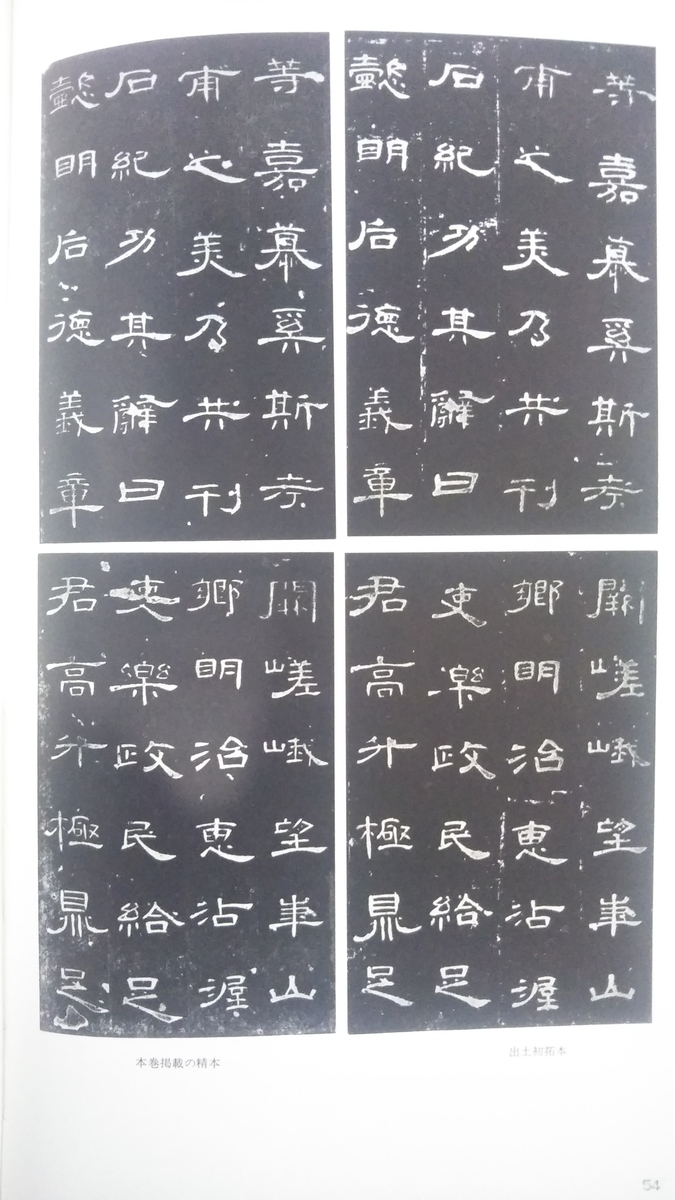 等嘉慕奚斯考
甫之美乃共刊
石紀功其辭曰
懿明后德義章
闕嵯峨望華山
鄉明治惠沾渥
吏樂政民給足
君高升極鼎足
出土初拓本
等嘉慕奚斯考
甫之美乃共刊
石紀功其辭曰
懿明后德義章
闕嵯峨望華山
鄉明治惠沾渥
吏樂政民給足
君高升極鼎足
本巻掲載の精本
54